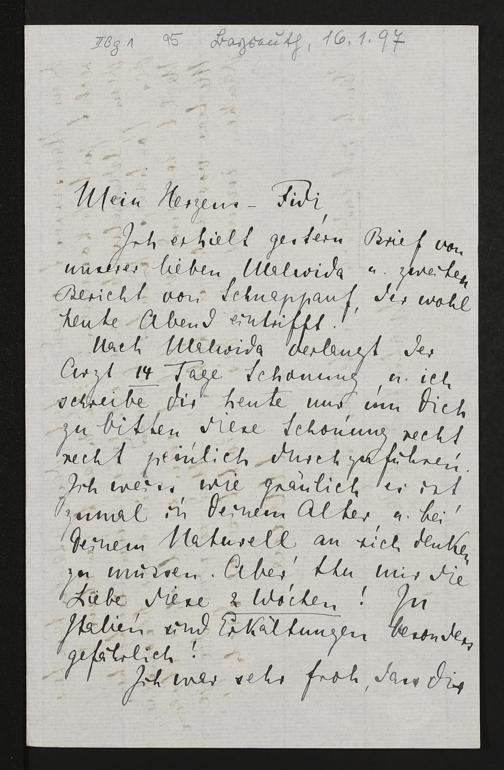 II Bg 1 95 Bayreuth, 16.1.97
Mein Herzens-Fidi
Ich erhielt gestern Brief von
unserer lieben Malwida u. zweiten
Bericht von Schnappauf, der wohl
heute Abend eintrifft!
Nach Malwida verlangt der
Arzt 14 Tage Schonung u. ich
schreibe dir heute nur um Dich
zu bitten diese Schonung recht
recht peinlich durchzuführen.
Ich weiss wie gräulich es ist
zumal in Deinem Alter u. bei
Deinem Naturell an sich denken
zu müssen. Aber thu mir die
Liebe diese 2 Wochen! In
Italien sind Erkältungen besonders
gefährlich!
Ich war sehr froh, dass die